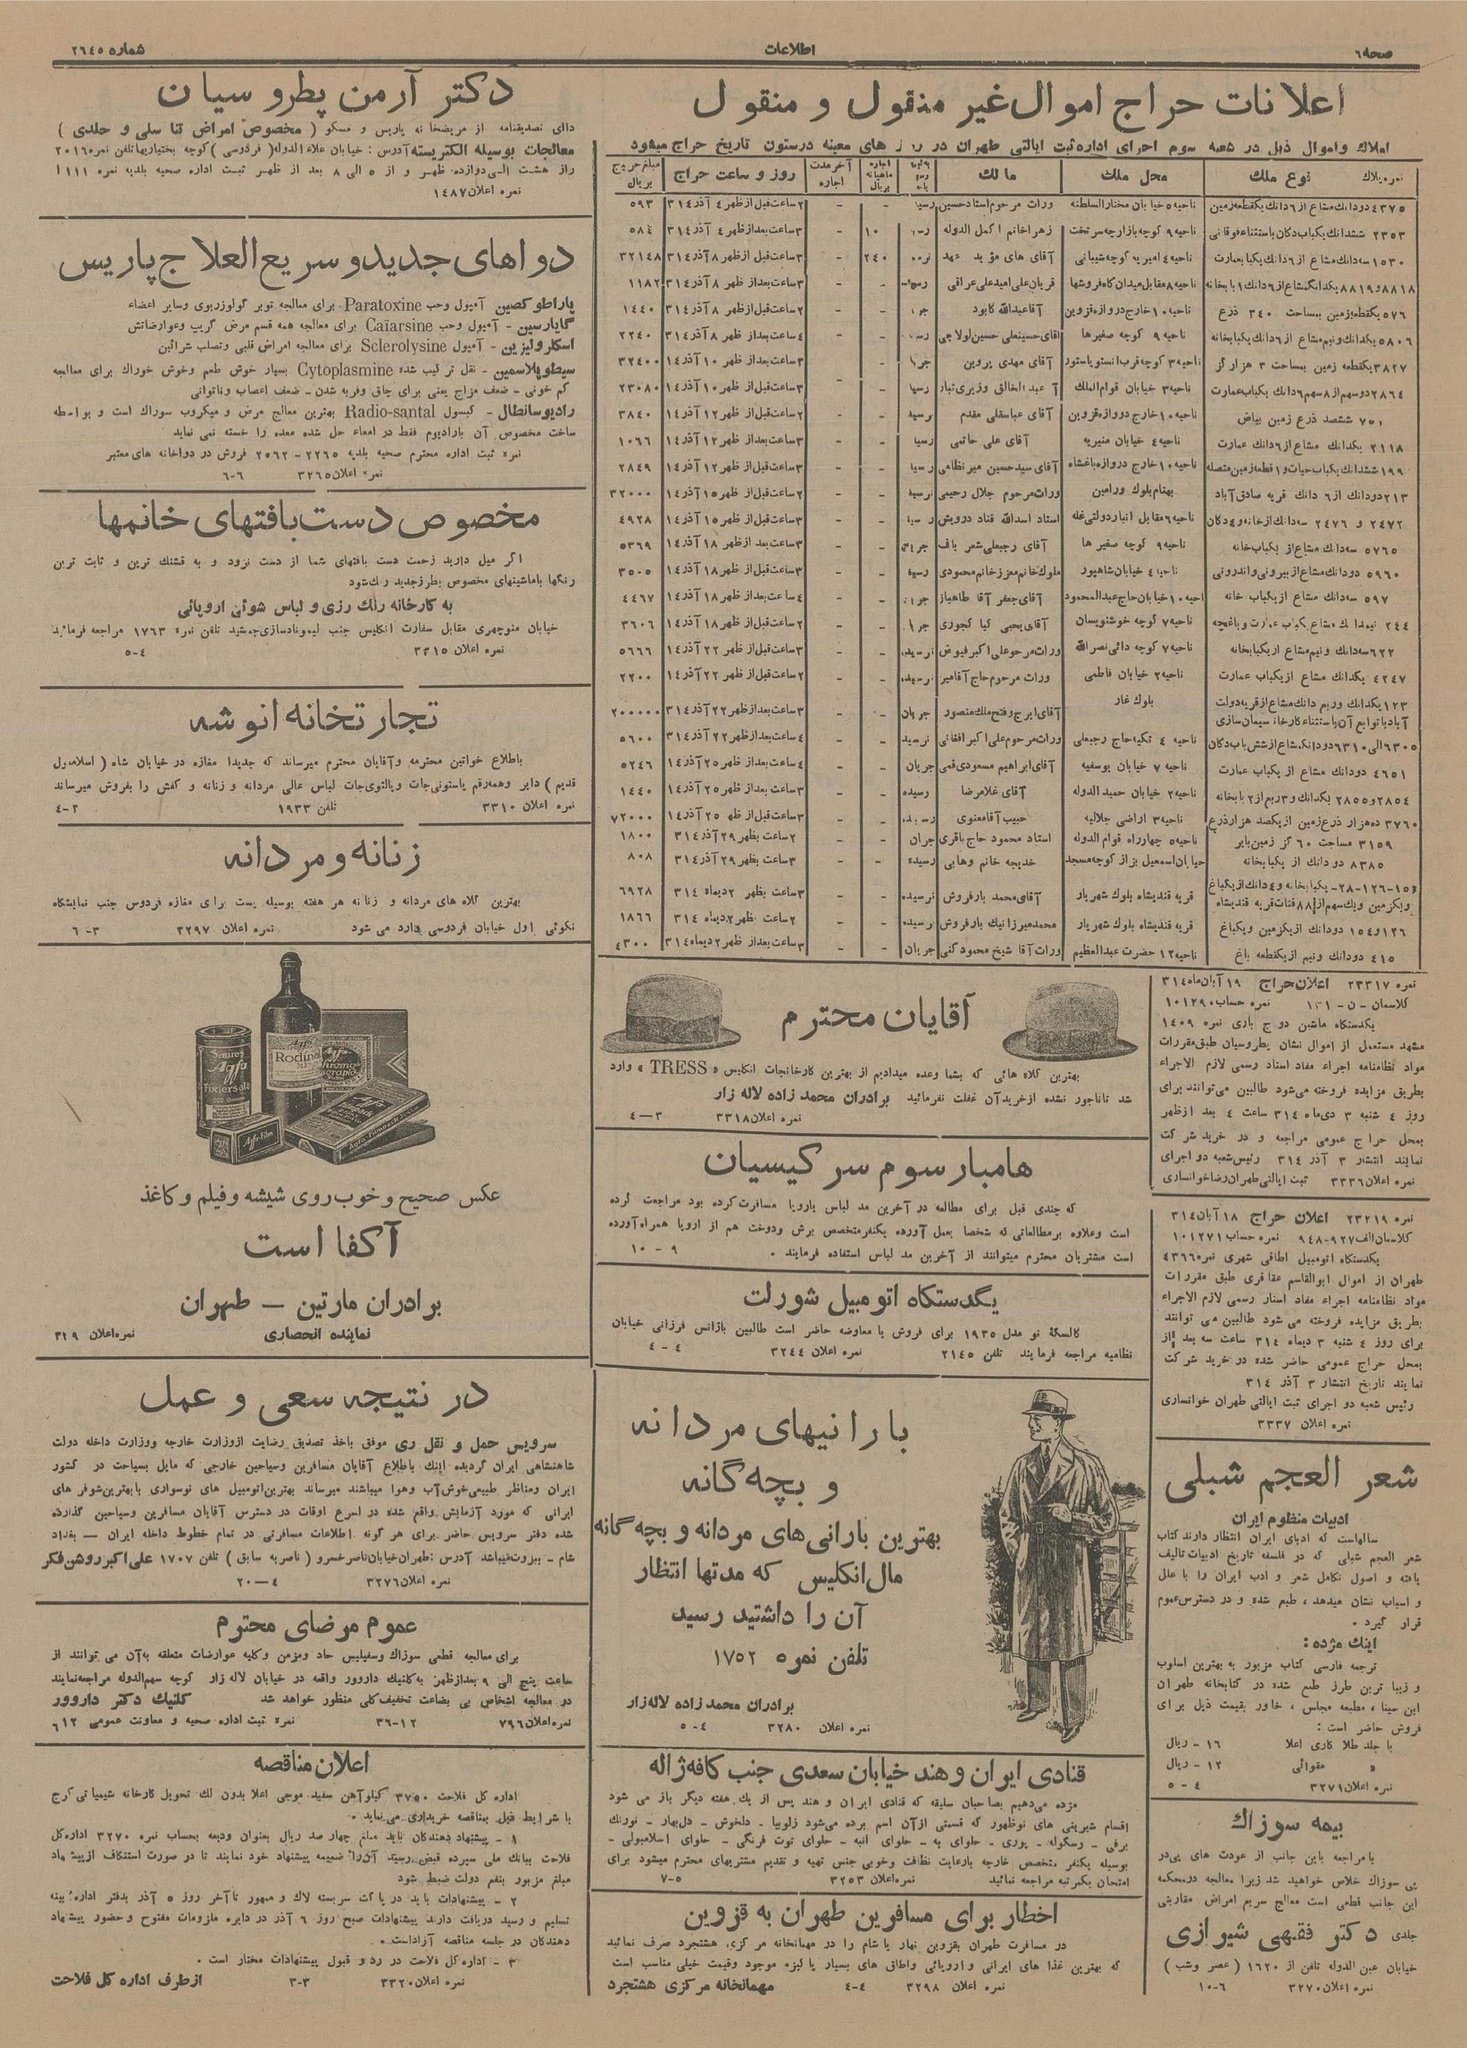 صحه ٦
اطلاعات
شماره ٢٦٤٥
اعلانات حراج اموال غیر منقول و منقول
املاك و اموال ذیل در شعبه سوم اجرای اداره ثبت ایالتی طهران در روز های معینه در ستون تاریخ حراج میشود
نمره پلاك
نوع ملك
محل ملك
مالك
اجاره ماهیانه بریال
آخر مدت اجاره
روز و ساعت حراج
مبلغ حراج بریال
٤٣٧٥ دو دانك مشاع از ٦ دانك یكقطعه زمین ناحیه ٥ خیابان مختار السلطنه وراث مرحوم استاد حسین - - ٢ ساعت قبل از ظهر ٤ آذر ٣١٤ ٥٩٣
٢٣٥٣ ششدانك یكباب دكان باستثناء فوقانی ناحیه ٩ كوچه بازارچه سر تخت زهرا خانم اكمل الدوله ١٠ - ٣ ساعت بعد از ظهر ٤ آذر ٣١٤ ٥٨٤
١٥٣٠ سه دانك مشاع از ٦ دانك یكبابعمارت ناحیه ٤ امیریه كوچه شیبانی ٢٤٠ - ٣ ساعت قبل از ظهر ٨ آذر ٣١٤ ٣٢١٤٨
٨٨١٨ و ٨٨١٩ یكدانك مشاع از ٦ دانك ناحیه ٨ مقابل میدان كاه فروشها قربان علی امید علی عراقی - - ٣ ساعت بعد از ظهر ٨ آذر ٣١٤ ١١٨٢
٥٧٦ یكقطعه زمین بمساحت ٣٤٠ ذرع ناحیه ١٠ خارج دروازه قزوین آقا عبدالله كابود - - ٢ ساعت قبل از ظهر ٨ آذر ٣١٤ ١٤٤٠
٥٨٠٦ یكدانك و نیم مشاع از ٦ دانك یكبابخانه ناحیه ٩ كوچه صغیر ها آقای حسینعلی حسین اولاجی - - ٤ ساعت بعد از ظهر ٨ آذر ٣١٤ ٢٢٤٠
٣٨٢٧ یكقطعه زمین بمساحت ٣ هزار گز ناحیه ٣ كوچه قرب انستو پاستور آقای مهدی پروین - - ٣ ساعت بعد از ظهر ١٠ آذر ١٤ ٣٢٤٠٠
٢٨٦٤ دو سهم از ٨ سهم ٦ دانك یكباب عمارت ناحیه ٣ خیابان قوام الملك آ عبدالخالق وزیری تبار - - ٣ ساعت قبل از ظهر ١٠ آذر ١٤ ٢٣٠٨٠
٧٥١ ششصد ذرع زمین بیاض ناحیه ١٠ خارج دروازه قزوین آقای عباسقلی مقدم - - ٢ ساعت قبل از ظهر ١٢ آذر ١٤ ٣٨٤٠
٢١١٨ یكدانك مشاع از ٦ دانك عمارت ناحیه ٤ خیابان منیریه آقای علی حاتمی - - ٣ ساعت بعد از ظهر ١٢ آذر ١٤ ١٠٦٦
١٩٩ ششدانك یكباب حیات و ١ قطعه زمین متصله ناحیه ١٠ خارج دروازه باغشاه آقای سید حسین میر نظامی - - ٣ ساعت قبل از ظهر ١٢ آذر ١٤ ٢٨٤٩
٢١٣ دو دانك از ٦ دانك قریه صادق آباد بهنام بلوك ورامین وراث مرحوم جلال رحیمی - - ٢ ساعت قبل از ظهر ١٥ آذر ١٤ ٣٢٠٠٠
٢٤٧٢ و ٢٤٧٦ سه دانك از خانه و ٤ دكان ناحیه ٦ مقابل انبار دولتی غله استاد اسدالله قناد درویش - - ٣ ساعت قبل از ظهر ١٥ آذر ١٤ ٤٩٢٨
٥٧٦٥ سه دانك مشاع از یكباب خانه ناحیه ٩ كوچه صغیر ها آقای رجبعلی شعر باف - - ٣ ساعت بعد از ظهر ١٨ آذر ١٤ ٥٣٦٩
٥٩٦٠ دو دانك مشاع از بیرونی و اندرونی ناحیه ٤ خیابان شاهپور ملوك خانم معزز خانم محمودی - - ٣ ساعت قبل از ظهر ١٨ آذر ١٤ ٣٥٠٥
٥٩٧ سه دانك مشاع از یكباب خانه ناحیه ١٠ خیابان حاج عبدالمحمود آقای جعفر آقا طاهباز - - ٤ ساعت بعد از ظهر ١٨ آذر ١٤ ٤٤٦٧
٢٤٤ نیمدانك مشاع یكباب عمارت و باغچه ناحیه ٧ كوچه خوشنویسان آقای یحیی كیا كجوری - - ٢ ساعت قبل از ظهر ١٨ آذر ١٤ ٣٦٠٦
٦٢٢ سه دانك و نیم مشاع از یكبابخانه ناحیه ٧ كوچه دائی نصرالله وراث مرحوم علی اكبر فیوض - - ٣ ساعت قبل از ظهر ٢٢ آذر ١٤ ٥٦٦٦
٤٢٤٧ یكدانك مشاع از یكباب عمارت ناحیه ٢ خیابان فاطمی وراث مرحوم حاج آقامیر - - ٢ ساعت قبل از ظهر ٢٢ آذر ١٤ ٢٢٠٠
١٢٣ یكدانك و ربع دانك مشاع از قریه دولت آباد با توابع آن باستثناء كارخانه سیمان سازی بلوك غار آقای ایرج و فتح ملك منصور جریان - - ٣ ساعت بعد از ظهر ٢٢ آذر ٣١٤ ٢٠٠٠٠٠
٦٣٠٥ الی ٦٣١٠ دو دانك مشاع از شش باب دكان ناحیه ٤ تكیه حاج رجبعلی وراث مرحوم علی اكبر افغانی - - ٤ ساعت بعد از ظهر ٢٢ آذر ٣١٤ ٥٦٠٠
٤٦٥١ دو دانك مشاع از یكباب عمارت ناحیه ٧ خیابان یوسفیه آقای ابراهیم مسعودی قمی جریان - - ٤ ساعت بعد از ظهر ٢٥ آذر ١٤ ٥٢٤٦
٢٨٥٤ و ٢٨٥٥ یكدانك و ٣ ربع از ٢ بابخانه ناحیه ٢ خیابان حمید الدوله آقای غلامرضا رسیده - - ٣ ساعت قبل از ظهر ٢٥ آذر ١٤ ١٤٤٠
٣٧٦٠ ده هزار ذرع زمین از یكصد هزار ذرع ناحیه ٣ اراضی جلالیه حبیب آقا معنوی - - ٣ ساعت قبل از ظهر ٢٥ آذر ٣١٤ ٧٢٠٠٠
٣١٥٩ مساحت ٦٠ گز زمین بایر ناحیه ٥ چهار راه قوام الدوله استاد محمود حاج باقری جریان - - ٢ ساعت بظهر ٢٩ آذر ٣١٤ ١٨٠٠
٨٣٨٥ دو دانك از یكبابخانه خیابان اسمعیل بزاز كوچه مسجد خدیجه خانم وهابی رسیده - - ٣ ساعت بظهر ٢٩ آذر ٣١٤ ٨٠٨
١٥٦-١٢٦-٢٨ یكبابخانه و ٤ دانك از یكباغ و یكزمین و یك سهم از ٨٨ قنات قریه قندیشاه قریه قندیشاه بلوك شهریار آقای محمد باز فروش نرسیده - - ٣ ساعت بظهر ٢ دیماه ٣١٤ ٦٩٢٨
١٢٦ و ١٥٤ دو دانك از یكزمین و یكباغ قریه قندیشاه بلوك شهریار محمد میرزا نیك باز فروش نرسیده - - ٢ ساعت بظهر ٢ دیماه ٣١٤ ١٨٦٦
٤١٥ دو دانك و نیم از یكقطعه باغ ناحیه ١٢ حضرت عبدالعظیم وراث آقا شیخ محمود كنی جریان - - ٣ ساعت بعد از ظهر ٢ دیماه ٣١٤ ٤٣٠٠
نمره ٢٣٣١٧ اعلان حراج ١٩ آبان ماه ٣١٤
كلاسمان - ن - ١٣١ نمره حساب ١٠١٢٩٠
یكدستگاه ماشین دو ج باری نمره ١٤٠٩
مشهد مستعمل از اموال نشان پطروسیان طبق مقررات
مواد نظامنامه اجراء مفاد اسناد رسمی لازم الاجراء
بطریق مزایده فروخته می‌شود طالبین می‌توانند برای
روز ٤ شنبه ٣ دی ماه ٣١٤ ساعت ٤ بعد از ظهر
بمحل حراج عمومی مراجعه و در خرید شركت
نمایند انتشار ٣ آذر ٣١٤ رئیس شعبه دو اجرای
نمره اعلان ٣٣٣٦ ثبت ایالتی طهران رضا خوانساری
نمره ٢٣٢١٩ اعلان حراج ١٨ آبان ٣١٤
كلاسمان الف ٩٢٧-٩٤٨ نمره حساب ١٠١٢٧١
یكدستگاه اتومبیل اطاقی شهری نمره ٤٣٦٦
طهران از اموال ابوالقاسم عقاقری طبق مقررات
مواد نظامنامه اجراء مفاد اسناد رسمی لازم الاجراء
بطریق مزایده فروخته می شود طالبین می توانند
برای روز ٤ شنبه ٣ دیماه ٣١٤ ساعت سه بعد از
بمحل حراج عمومی حاضر شده در خرید شركت
نمایند تاریخ انتشار ٣ آذر ٣١٤
رئیس شعبه دو اجرای ثبت ایالتی طهران خوانساری
نمره اعلان ٣٣٣٧
شعر العجم شبلی
ادبیات منظوم ایران
سالهاست كه ادبای ایران انتظار دارند كتاب
شعر العجم شبلی كه در فلسفه تاریخ ادبیات تالیف
یافته و اصول تكامل شعر و ادب ایران را با علل
و اسباب نشان میدهد، طبع شده و در دسترس عموم
قرار گیرد .
اینك مژده :
ترجمه فارسی كتاب مزبور به بهترین اسلوب
و زیبا ترین طرز طبع شده در كتابخانه طهران
ابن سینا ، مطبعه مجلس ، خاور بقیمت ذیل برای
فروش حاضر است :
با جلد طلا كاری اعلا ١٦ - ریال
« مقوائی ١٢ - ریال
نمره اعلان ٣٢٧١ ٤ - ٥
بیمه سوزاك
با مراجعه باین جانب از عودت های پی در
پی سوزاك خلاص خواهید شد زیرا معالجه در محكمه
این جانب قطعی است معالج سریع امراض مقاربتی
جلدی دكتر فقیهی شیرازی
خیابان عین الدوله تلفن از ١٦٢٠ ( عصر و شب )
نمره اعلان ٣٢٧٠ ٦-١٠
آقایان محترم
بهترین كلاه هائی كه بشما وعده میدادیم از بهترین كارخانجات انگلیس « TRESS » وارد
شد تا ناجور نشده از خرید آن غفلت نفرمائید برادران محمد زاده لاله زار
نمره اعلان ٣٣١٨ ٣-٤
هامبارسوم سركیسیان
كه چندی قبل برای مطالعه در آخرین مد لباس باروپا مسافرت كرده بود مراجعت كرده
است و علاوه بر مطالعاتی كه شخصا بعمل آورده یكنفر متخصص برش و دوخت هم از اروپا همراه آورده
است مشتریان محترم میتوانند از آخرین مد لباس استفاده فرمایند . ٩ - ١٠
یكدستگاه اتومبیل شورلت
كالسگۀ نو مدل ١٩٣٥ برای فروش یا معاوضه حاضر است طالبین باژانس فرزانی خیابان
نظامیه مراجعه فرمایند تلفن ٢١٤٥ نمره اعلان ٣٢٤٤ ٤-٤
بارانیهای مردانه
و بچه گانه
بهترین بارانی های مردانه و بچه گانه
مال انگلیس كه مدتها انتظار
آن را داشتید رسید
تلفن نمره ١٧٥٢
برادران محمد زاده لاله زار
نمره اعلان ٣٢٨٠ ٤-٥
قنادی ایران و هند خیابان سعدی جنب كافه ژاله
مژده می‌دهیم بصاحبان سلیقه كه قنادی ایران و هند پس از یك هفته دیگر باز می شود
اقسام شیرینی های نوظهور كه قسمتی از آن اسم برده می‌شود زلوبیا - دلخوش - دل‌بهار - نورنگ
برفی - رسگوله - پوری - حلوای به - حلوای انبه - حلوای توت فرنگی - حلوای اسلامبولی -
بوسیله یكنفر متخصص خارجه با رعایت نظافت و خوبی جنس تهیه و تقدیم مشتریهای محترم میشود برای
امتحان یكمرتبه مراجعه نمائید نمره اعلان ٣٢٥٣ ٥-٧
اخطار برای مسافرین طهران به قزوین
در مسافرت طهران بقزوین نهار یا شام را در مهمانخانه مركزی هشتجرد صرف نمائید
كه بهترین غذا های ایرانی و اروپائی و اطاق های بسیار پاكیزه موجود و قیمت خیلی مناسب است
نمره اعلان ٣٢٩٨ ٤-٤ مهمانخانه مركزی هشتجرد
دكتر آرمن پطروسیان
دارای تصدیقنامه از مریضخانه پاریس و مسكو ( مخصوص امراض تناسلی و جلدی )
معالجات بوسیله الكتریسته آدرس : خیابان علاءالدوله ( فردوسی ) كوچه بختیاریها تلفن نمره ٢٠١٦
از هشت الی دوازده ظهر و از ٥ الی ٨ بعد از ظهر ثبت اداره صحیه بلدیه نمره ١١١
نمره اعلان ١٤٨٧
دواهای جدید و سریع العلاج پاریس
پاراطوكسین آمپول و حب Paratoxine برای معالجه توبر كولوزریوی و سایر اعضاء
گایارسین - آمپول و حب Caïarsine برای معالجه همه قسم مرض گریپ و عوارضاتش
اسكلرولیزین - آمپول Sclerolysine برای معالجه امراض قلبی و تصلب شرائین
سیطوپلاسمین - نقل تركیب شده Cytoplasmine بسیار خوش طعم و خوش خوراك برای معالجه
كم خونی - ضعف مزاج یعنی برای چاق و فربه شدن - ضعف اعصاب و ناتوانی
رادیو سانطال - كپسول Radio-santal بهترین معالج مرض و میكروب سوزاك است و بواسطه
ساخت مخصوص آن با رادیوم فقط در امعاء حل شده معده را خسته نمی نماید
نمره ثبت اداره محترم صحیه بلدیه ٢٢٦٥ - ٢٥٦٢ فروش در دواخانه های معتبر
نمره اعلان ٣٢٦٥ ٦-٦
مخصوص دست بافتهای خانمها
اگر میل دارید زحمت دست بافتهای شما از دست نرود و به قشنگ ترین و ثابت ترین
رنگها با ماشینهای مخصوص بطرز جدید رنك شود
به كارخانه رنك رزی و لباس شوئی اروپائی
خیابان منوچهری مقابل سفارت انگلیس جنب لیموناد سازی جمشید تلفن نمره ١٧٦٣ مراجعه فرمائید
نمره اعلان ٣٣١٥ ٤-٥
تجارتخانه انوشه
باطلاع خواتین محترمه و آقایان محترم میرساند كه جدیدا مغازه در خیابان شاه ( اسلامبول
قدیم ) دایر و همه رقم پاستونی‌جات و پالتوی‌جات لباس عالی مردانه و زنانه و كفش را بفروش میرساند
نمره اعلان ٣٣١٠ تلفن ١٩٣٣ ٢-٤
زنانه و مردانه
بهترین كلاه های مردانه و زنانه هر هفته بوسیله پست برای مغازه فردوس جنب نمایشگاه
نكوئی اول خیابان فردوسی وارد می شود نمره اعلان ٣٢٩٧ ٣-٦
Agfa
Rodinal
Agfa
عكس صحیح و خوب روی شیشه و فیلم و كاغذ
آكفا است
برادران مارتین — طهران
نماینده انحصاری
نمره اعلان ٣٢٩
در نتیجه سعی و عمل
سرویس حمل و نقل ری موفق باخذ تصدیق رضایت از وزارت خارجه و وزارت داخله دولت
شاهنشاهی ایران گردیده اینك باطلاع آقایان مسافرین و سیاحین خارجی كه مایل بسیاحت در كشور
ایران و مناظر طبیعی خوش آب و هوا میباشند میرساند بهترین اتومبیل های نوسواری با بهترین شوفر های
ایرانی كه مورد آزمایش واقع شده در اسرع اوقات در دسترس آقایان مسافرین و سیاحین گذارده
شده دفتر سرویس حاضر برای هر گونه اطلاعات مسافرتی در تمام خطوط داخله ایران - بغداد
شام - بیروت میباشد آدرس : طهران خیابان ناصر خسرو ( ناصریه سابق ) تلفن ١٧٠٧ علی اكبر روشن فكر
نمره اعلان ٣٢٧٦ ٤-٢٠
عموم مرضای محترم
برای معالجه قطعی سوزاك و سفیلیس حاد و مزمن و كلیه عوارضات متعلقه به آن می توانند از
ساعت پنج الی ٩ بعد از ظهر به كلنیك داروور واقعه در خیابان لاله زار كوچه سهم الدوله مراجعه نمایند
در معالجه اشخاص بی بضاعت تخفیف كلی منظور خواهد شد كلنیك دكتر داروور
نمره اعلان ٧٩٦ ١٢-٣٦ نمره ثبت اداره صحیه و معاونت عمومی ٦١٢
اعلان مناقصه
اداره كل فلاحت ٣٧٥٠ كیلو آهن سفید موجی اعلا بدون لك تحویل كارخانه شیمیائی كرج
با شرایط ذیل بمناقصه خریداری می نماید .
١ - پیشنهاد دهندگان باید مبلغ چهار صد ریال بعنوان ودیعه بحساب نمره ٣٢٧٠ اداره كل
فلاحت ببانك ملی سپرده قبض رسید آن را ضمیمه پیشنهاد خود نمایند تا در صورت استنكاف از پیشنهاد
مبلغ مزبور بنفع دولت ضبط شود
٢ - پیشنهادات باید در پاكت سربسته لاك و ممهور تا آخر روز ٥ آذر بدفتر اداره
تسلیم و رسید دریافت دارند پیشنهادات صبح روز ٦ آذر در دایره ملزومات مفتوح و حضور پیشنهاد
دهندگان در جلسه مناقصه آزاد است .
٣ - اداره كل فلاحت در رد و قبول پیشنهادات مختار است .
نمره اعلان ٣٣٢٠ ٣-٣ از طرف اداره كل فلاحت